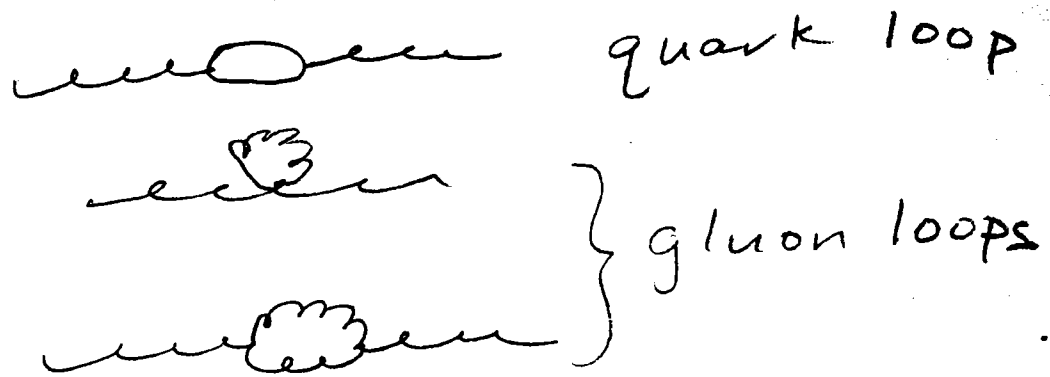 quark loop
gluon loops